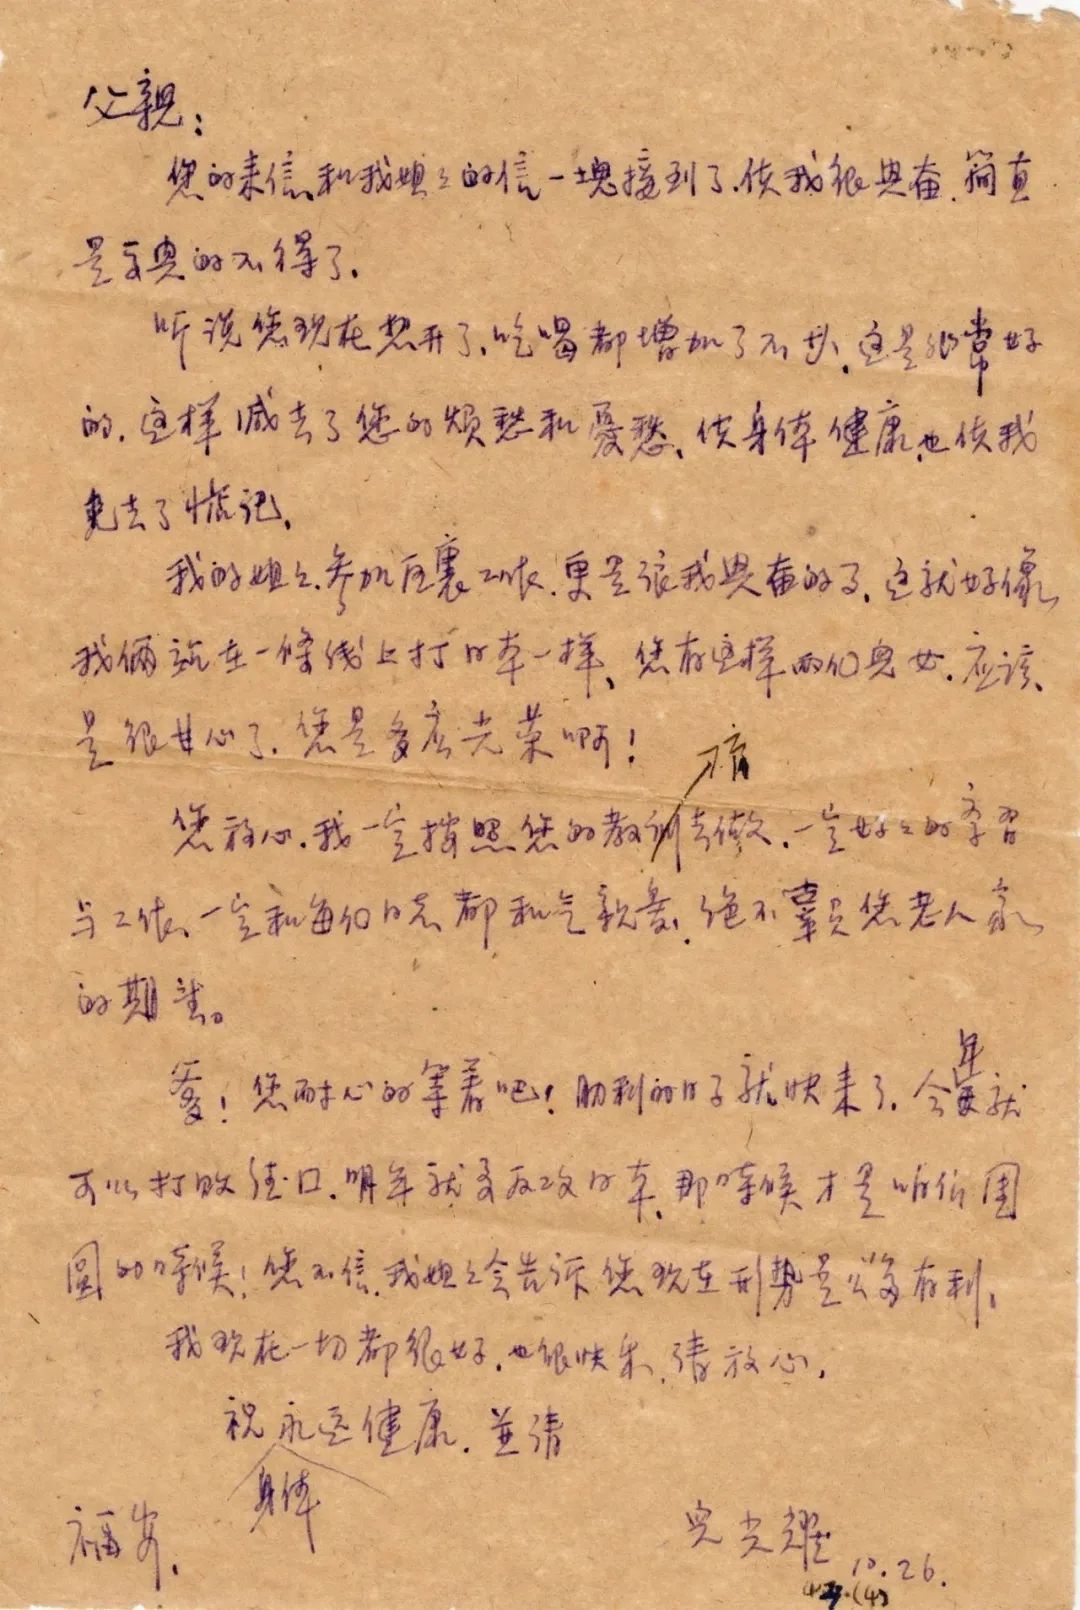 父親：
您的来信和我姐々的信一塊接到了.使我很興奋.簡直
是高興的不得了.
听说您现在想开了、吃喝都增加了不少、这是非常好
的、这样减去了您的烦愁和憂愁、使身体健康、也使我
免去了惦记、
我的姐々、参加区裏工作、更是讓我興奋的了、这就好像
我俩站在一條线上打日本一样、您有这样两个兒女、应该
是很甘心了、您是多麽光荣啊！
您放心、我一定按照您的教训去做、一定好々的学习
与工作、一定和每個同志都和气親爱、绝不辜負您老人家
的期望。
爹！您耐心的等着吧！勝利的日子就快来了、今年就
可以打败德国、明年就要反攻日本、那時候才是咱們團
圆的時候！您不信、我姐々会告诉您现在形势是多麽有利、
我现在一切都很好、也很快乐、請放心、
祝永远健康、並請
身体
福安、
兒光耀
10.26.